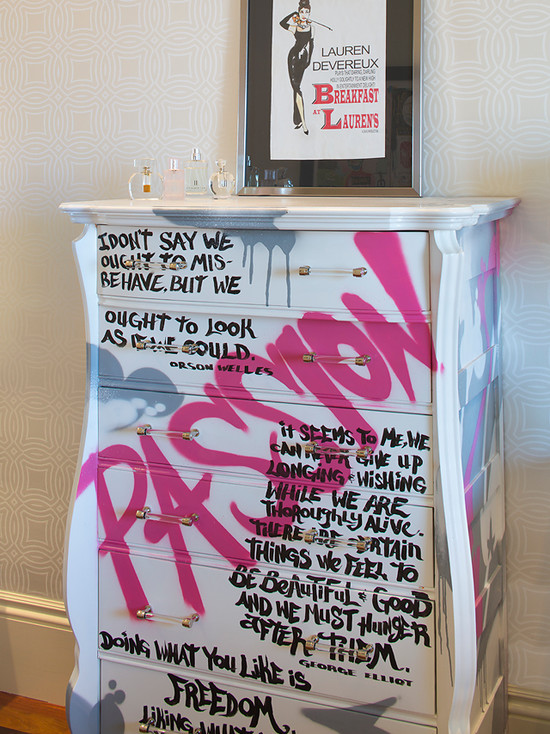 LAUREN
DEVEREUX
PLAYS THAT DARING, DARLING
HOLLY GOLIGHTLY TO A NEW HIGH
BREAKFAST
AT LAUREN'S
I DON'T SAY WE
OUGHT TO MIS-
BEHAVE, BUT WE
OUGHT TO LOOK
AS IF WE COULD.
ORSON WELLES
PASSION
iT SEEMS TO ME, WE
CAN NEVER GIVE UP
LONGING & WISHING
WHILE WE ARE
THOROUGHLY ALIVE.
THERE ARE CERTAIN
THINGS WE FEEL TO
BE BEAUTIFUL & GOOD
AND WE MUST HUNGER
AFTER THEM.
GEORGE ELLIOT
DOING WHAT YOU LIKE iS
FREEDOM
LIKING WHAT